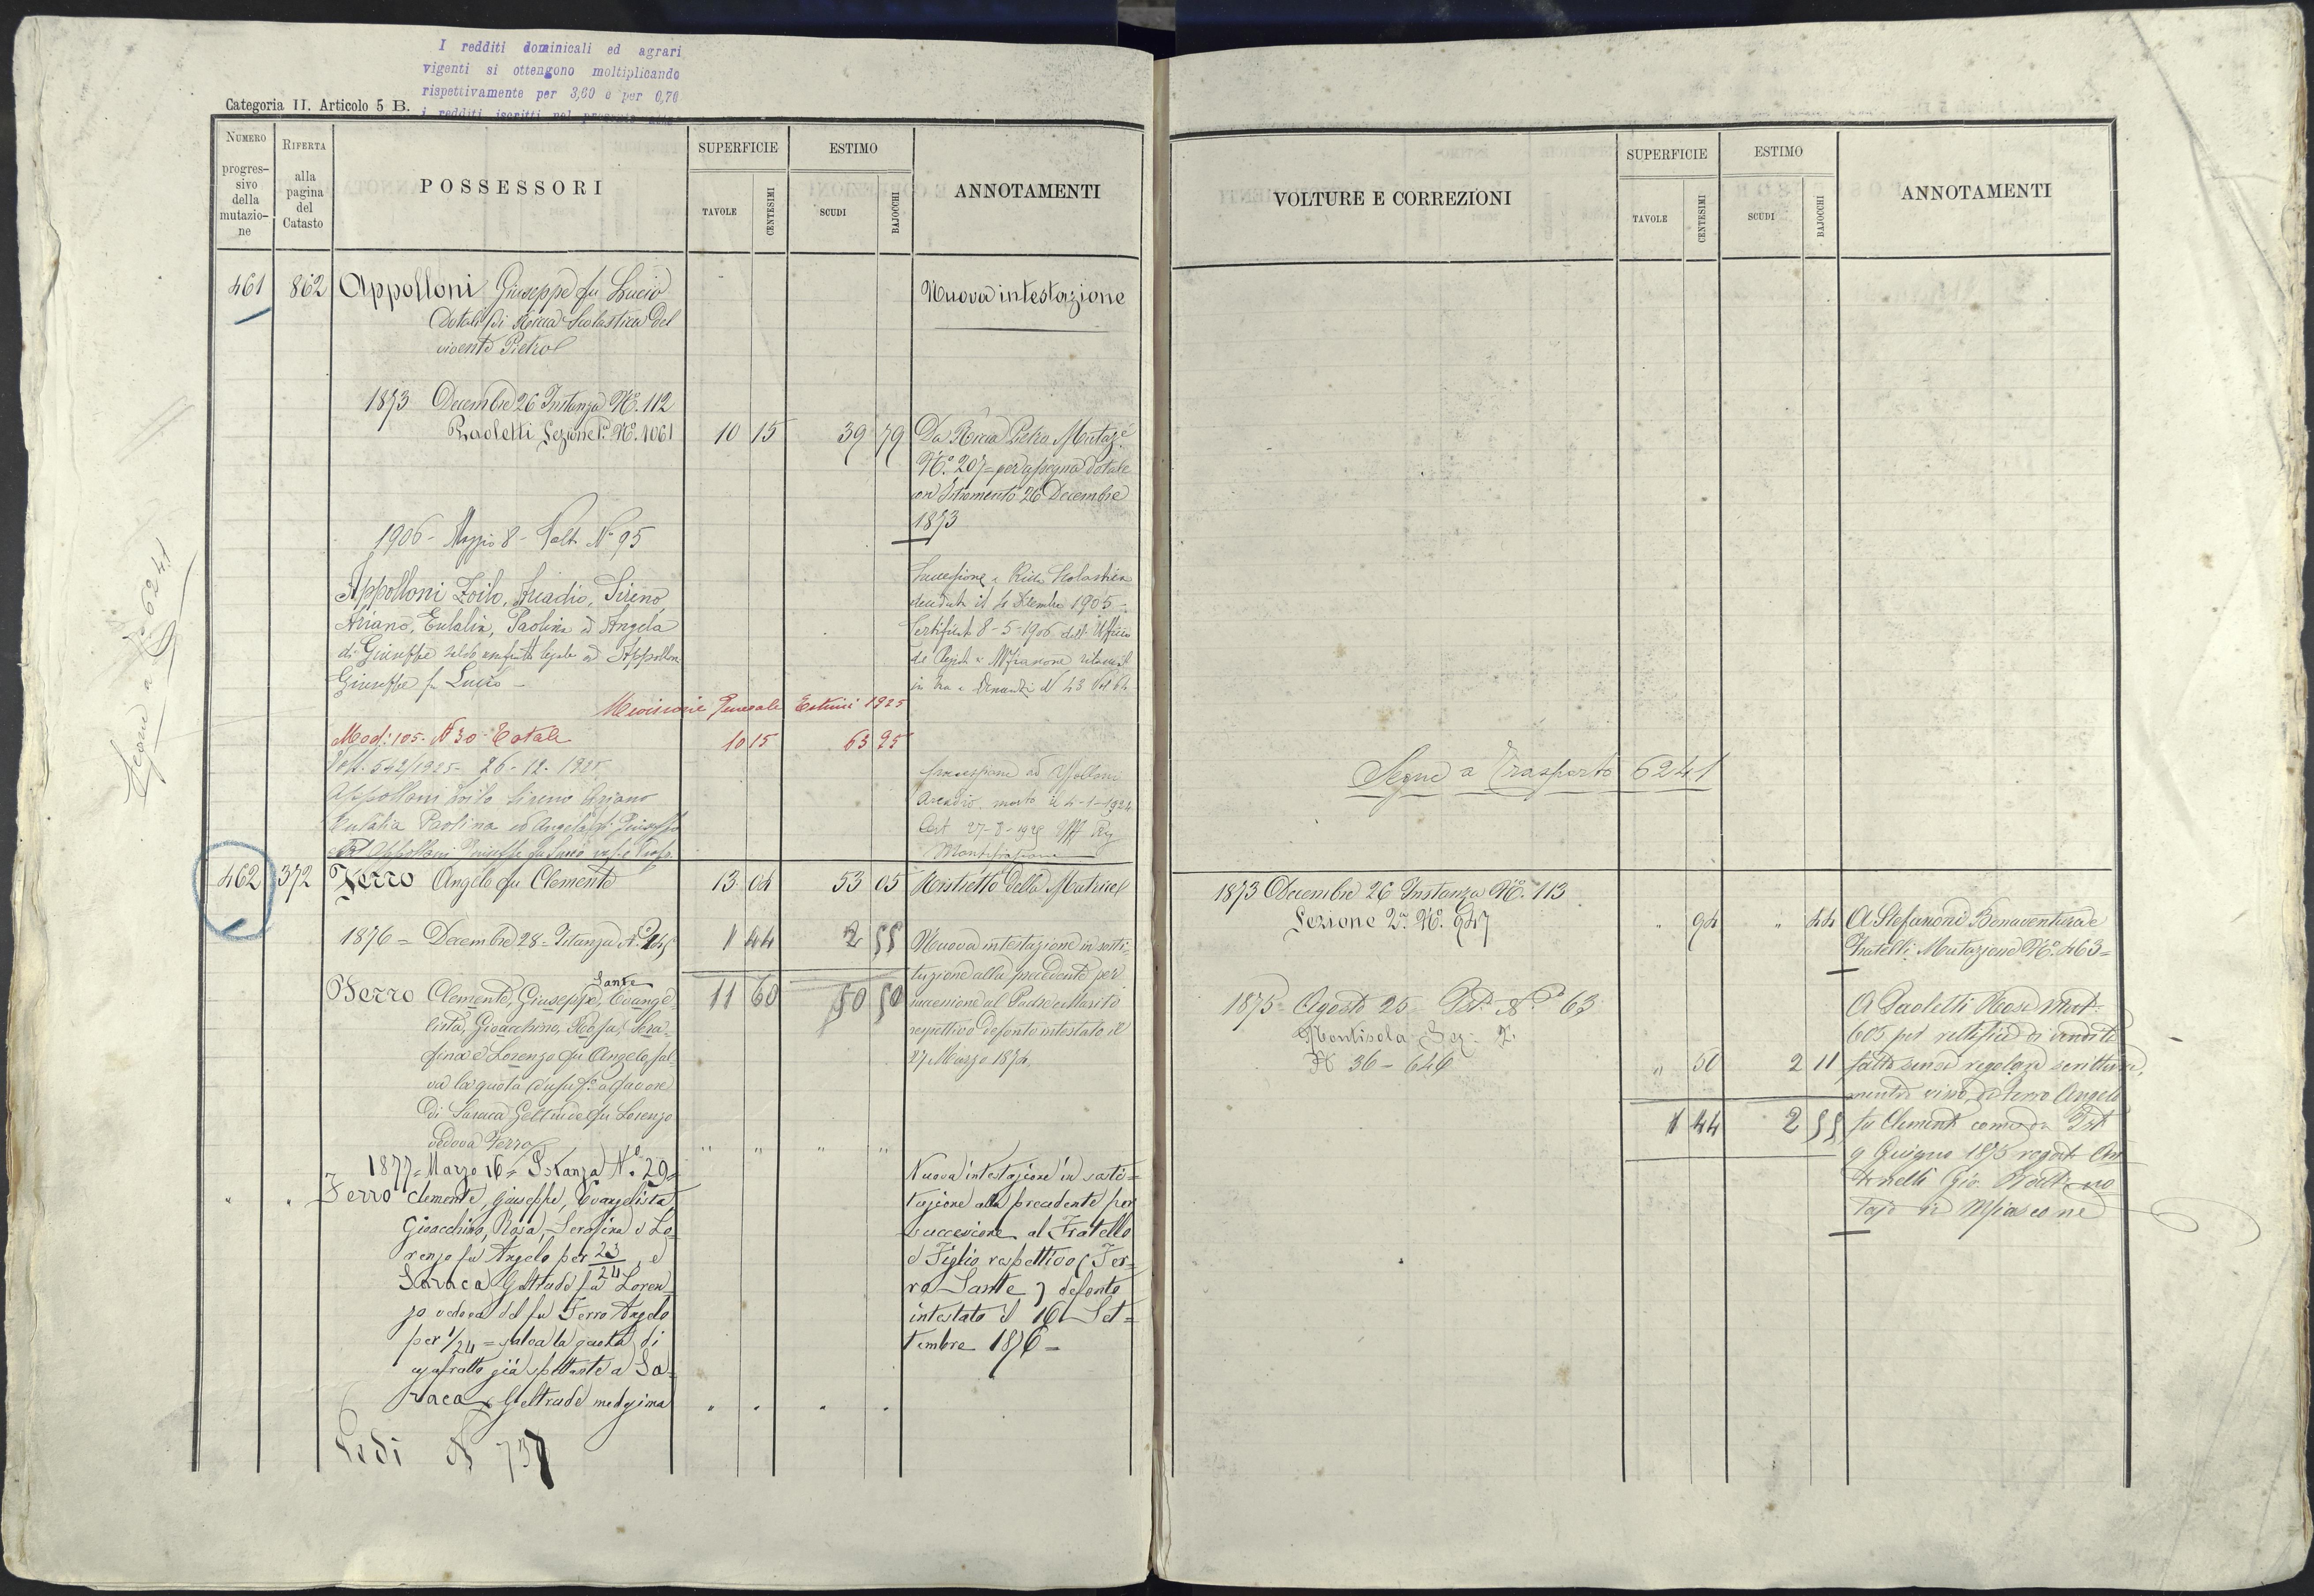 I redditi dominicali ed agrari
vigenti si ottengono moltiplicando
rispettivamente per 3,60 e per 0,70
i redditi iscritti nel
Categoria II. Articolo 5 B.
NUMERO
progres-
sivo
della
mutazio-
ne
RIFERTA
alla
pagina
del
Catasto
POSSESSORI
SUPERFICIE
TAVOLE
CENTESIMI
ESTIMO
SCUDI
BAJOCCHI
ANNOTAMENTI
461 862 Appolloni Giuseppe fu Lucio Nuova intestazione
Dotali di Ricca Scolastica del
vivente Pietro
1873 Decembre 26 Instanza N.º 112
Paoletti Sezione 1ª N.º 1061 10 15 39 79 Da Ricca Pietro Mutaz.e
N.º 207 = per assegna dotale
con Istromento 26 Decembre
1873
1906 - Maggio 8 - Volt. Nº 95
Appolloni Zoilo, Arcadio, Sireno,
Ariano, Eulalia, Paolina ed Angela
di Giuseppe salvo usufrutto legale ad Appolloni
Giuseppe fu Lucio -
Successione a Ricca Scolastica
1905 -
Certificato 8-5-1906 dell' Ufficio
in
Revisione Generale Estimi 1925
Mod: 105 - N 30 - Totale 10 15 63 95
Volt. 542/1925 - 26-12-1925
Appolloni Zoilo Sireno Ariano
Eulalia Paolina ed Angela di Giuseppe
Appolloni Giuseppe fu Lucio
Successione ad Appolloni
Arcadio morto il 4-1-1924
Cert 27-8-1925 Uff Reg
Montefiascone
Segue a Nº 6241
462 372 Ferro Angelo fu Clemente 13 04 53 05 Ristretto della Matrice
1876 = Decembre 28 = Istanza N.º 145 1 44 2 55 Nuova intestazione in sosti-
tuzione alla precedente per
Sante
Ferro Clemente, Giuseppe, Evange- 11 60 50 50 successione al Padre e Marito
lista, Gioacchino, Rosa, Sera- respettivo defonto intestato il
fina e Lorenzo fu Angelo, sal- 27 Marzo 1874.
va la quota d'usuf.º a favore
di Saraca Geltrude fu Lorenzo
vedova Ferro " " " "
1877 = Marzo 16 = Istanza N.º 29 =
" " Ferro Clemente, Giuseppe, Evangelista,
Gioacchino, Rosa, Serafina e Lo-
renzo fu Angelo per 23/24, e
Saraca Geltrude fu Loren-
zo vedova del fu Ferro Angelo
per 1/24 = salva la quota di
usufrutto già spettante a Sa-
raca Geltrude medesima " " " "
Nuova intestazione in sosti=
tuzione alla precedente per
successione al Fratello
e Figlio respettivo (Fer-
ro Sante) defonto
intestato il 16 Set=
tembre 1876 -
Vedi N 737
VOLTURE E CORREZIONI
SUPERFICIE
TAVOLE
CENTESIMI
ESTIMO
SCUDI
BAJOCCHI
ANNOTAMENTI
Segue a Trasporto 6241
1873 Decembre 26 Instanza N.º 113
Sezione 2ª N.º 947 " 94 " 44 A Stefanoni Bonaventura e
Fratelli Mutazione N.º 463 =
1875 = Agosto 25 - Ist. N.º 63
Montisola Sez. 2
N 36 - 646 " 50 2 11
1 44 2 55
A Paoletti Rosa Mut.
605 per rettifica di vendita
fatta senza regolare scrittura,
mentre visse, da Ferro Angelo
fu Clemente come da Ist
9 Giugno 1875 rogat An
tonelli Gio. Batt.a no
tajo in Mfiascone